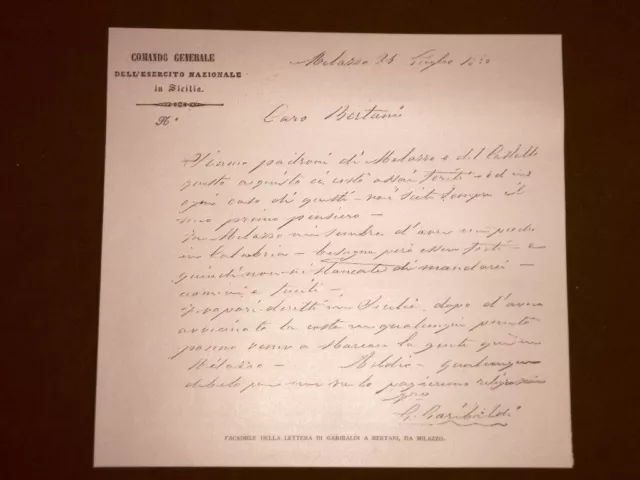 COMANDO GENERALE
DELL'ESERCITO NAZIONALE
in Sicilia.
N.°
Melazzo 25 Luglio 1860
Caro Bertani
Siamo padroni di Melazzo e del Castello
questo acquisto ci costò assai feriti - ed in
ogni caso di questi - voi siete sempre il
mio primo pensiero -
In Melazzo mi sembra d'aver un piede
in Calabria - bisogna però esser forti - e
quindi non vi stancate di mandarci -
uomini e fucili -
I vapori diretti in Sicilia, dopo d'aver
avvicinato la costa in qualunque punto
posson venire a sbarcar la gente qui in
Milazzo - Addio - qualunque
debito per noi lo pagheremo
G. Garibaldi
FACSIMILE DELLA LETTERA DI GARIBALDI A BERTANI, DA MILAZZO.